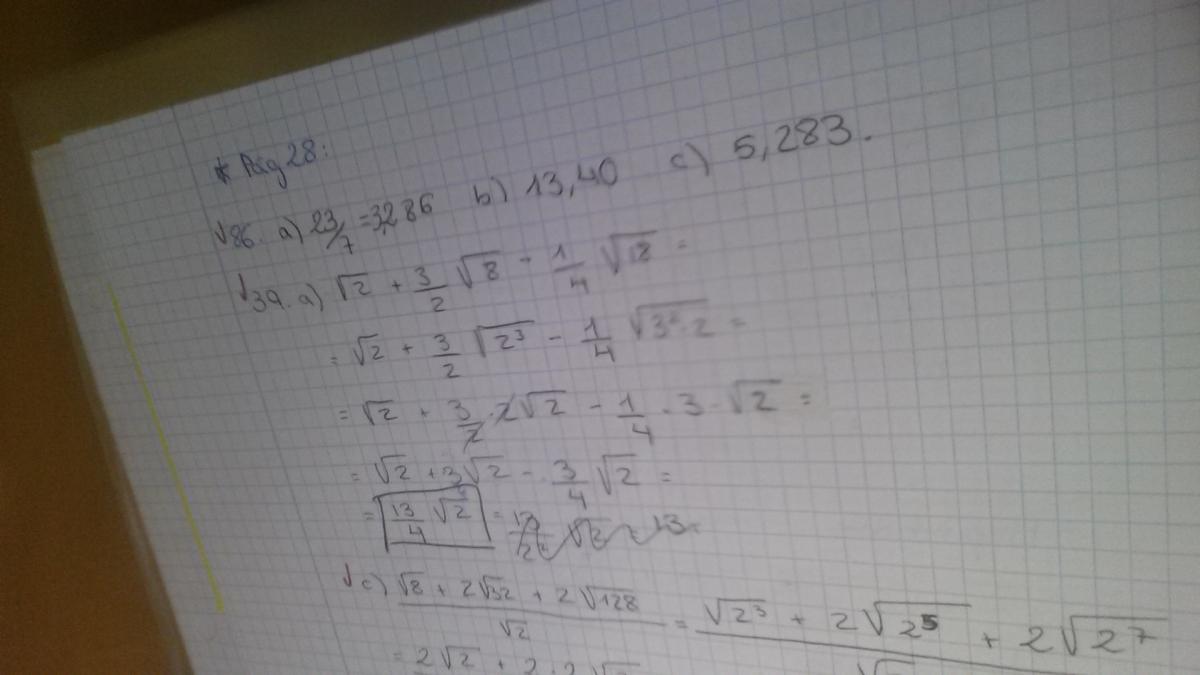 * Pág 28:
√86. a) 23/7 = 3,286 b) 13,40 c) 5,283.
√39. a) √2 + 3/2 √8 - 1/4 √18 =
= √2 + 3/2 √2³ - 1/4 √3²·2 =
= √2 + 3/2 · 2√2 - 1/4 · 3 · √2 =
= √2 + 3√2 - 3/4 √2 =
= 13/4 √2 =
√ c) (√8 + 2√32 + 2√128)/√2 = √2³ + 2√2⁵ + 2√2⁷
= 2√2 + 2·2√